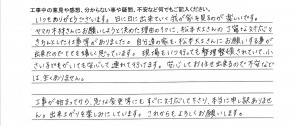 工事中の意見や感想、分からない事や疑問、不安など何でもご記入ください。
いつもありがとうございます。日に日に出来ていく我が家を見るのが楽しいです。
ヤマカ木材さんにお願いしようと決めた理由の1つに、松本大工さんの丁寧な対応と
きちんとした仕事等がありましたので、自分達の家を松本大工さんにお願いする事が
出来たのでとても嬉しく思っています。現場もいつ行っても整理整頓されていて、小
さい子どもがいても安心して連れて行けます。安心してお任せ出来るので不安など
は、全くありません。
工事が始まってから、急な変更等にもすぐに対応して下さり、本当に申し訳ありませ
ん。出来上がりを楽しみにしています。これからもよろしくお願いします。